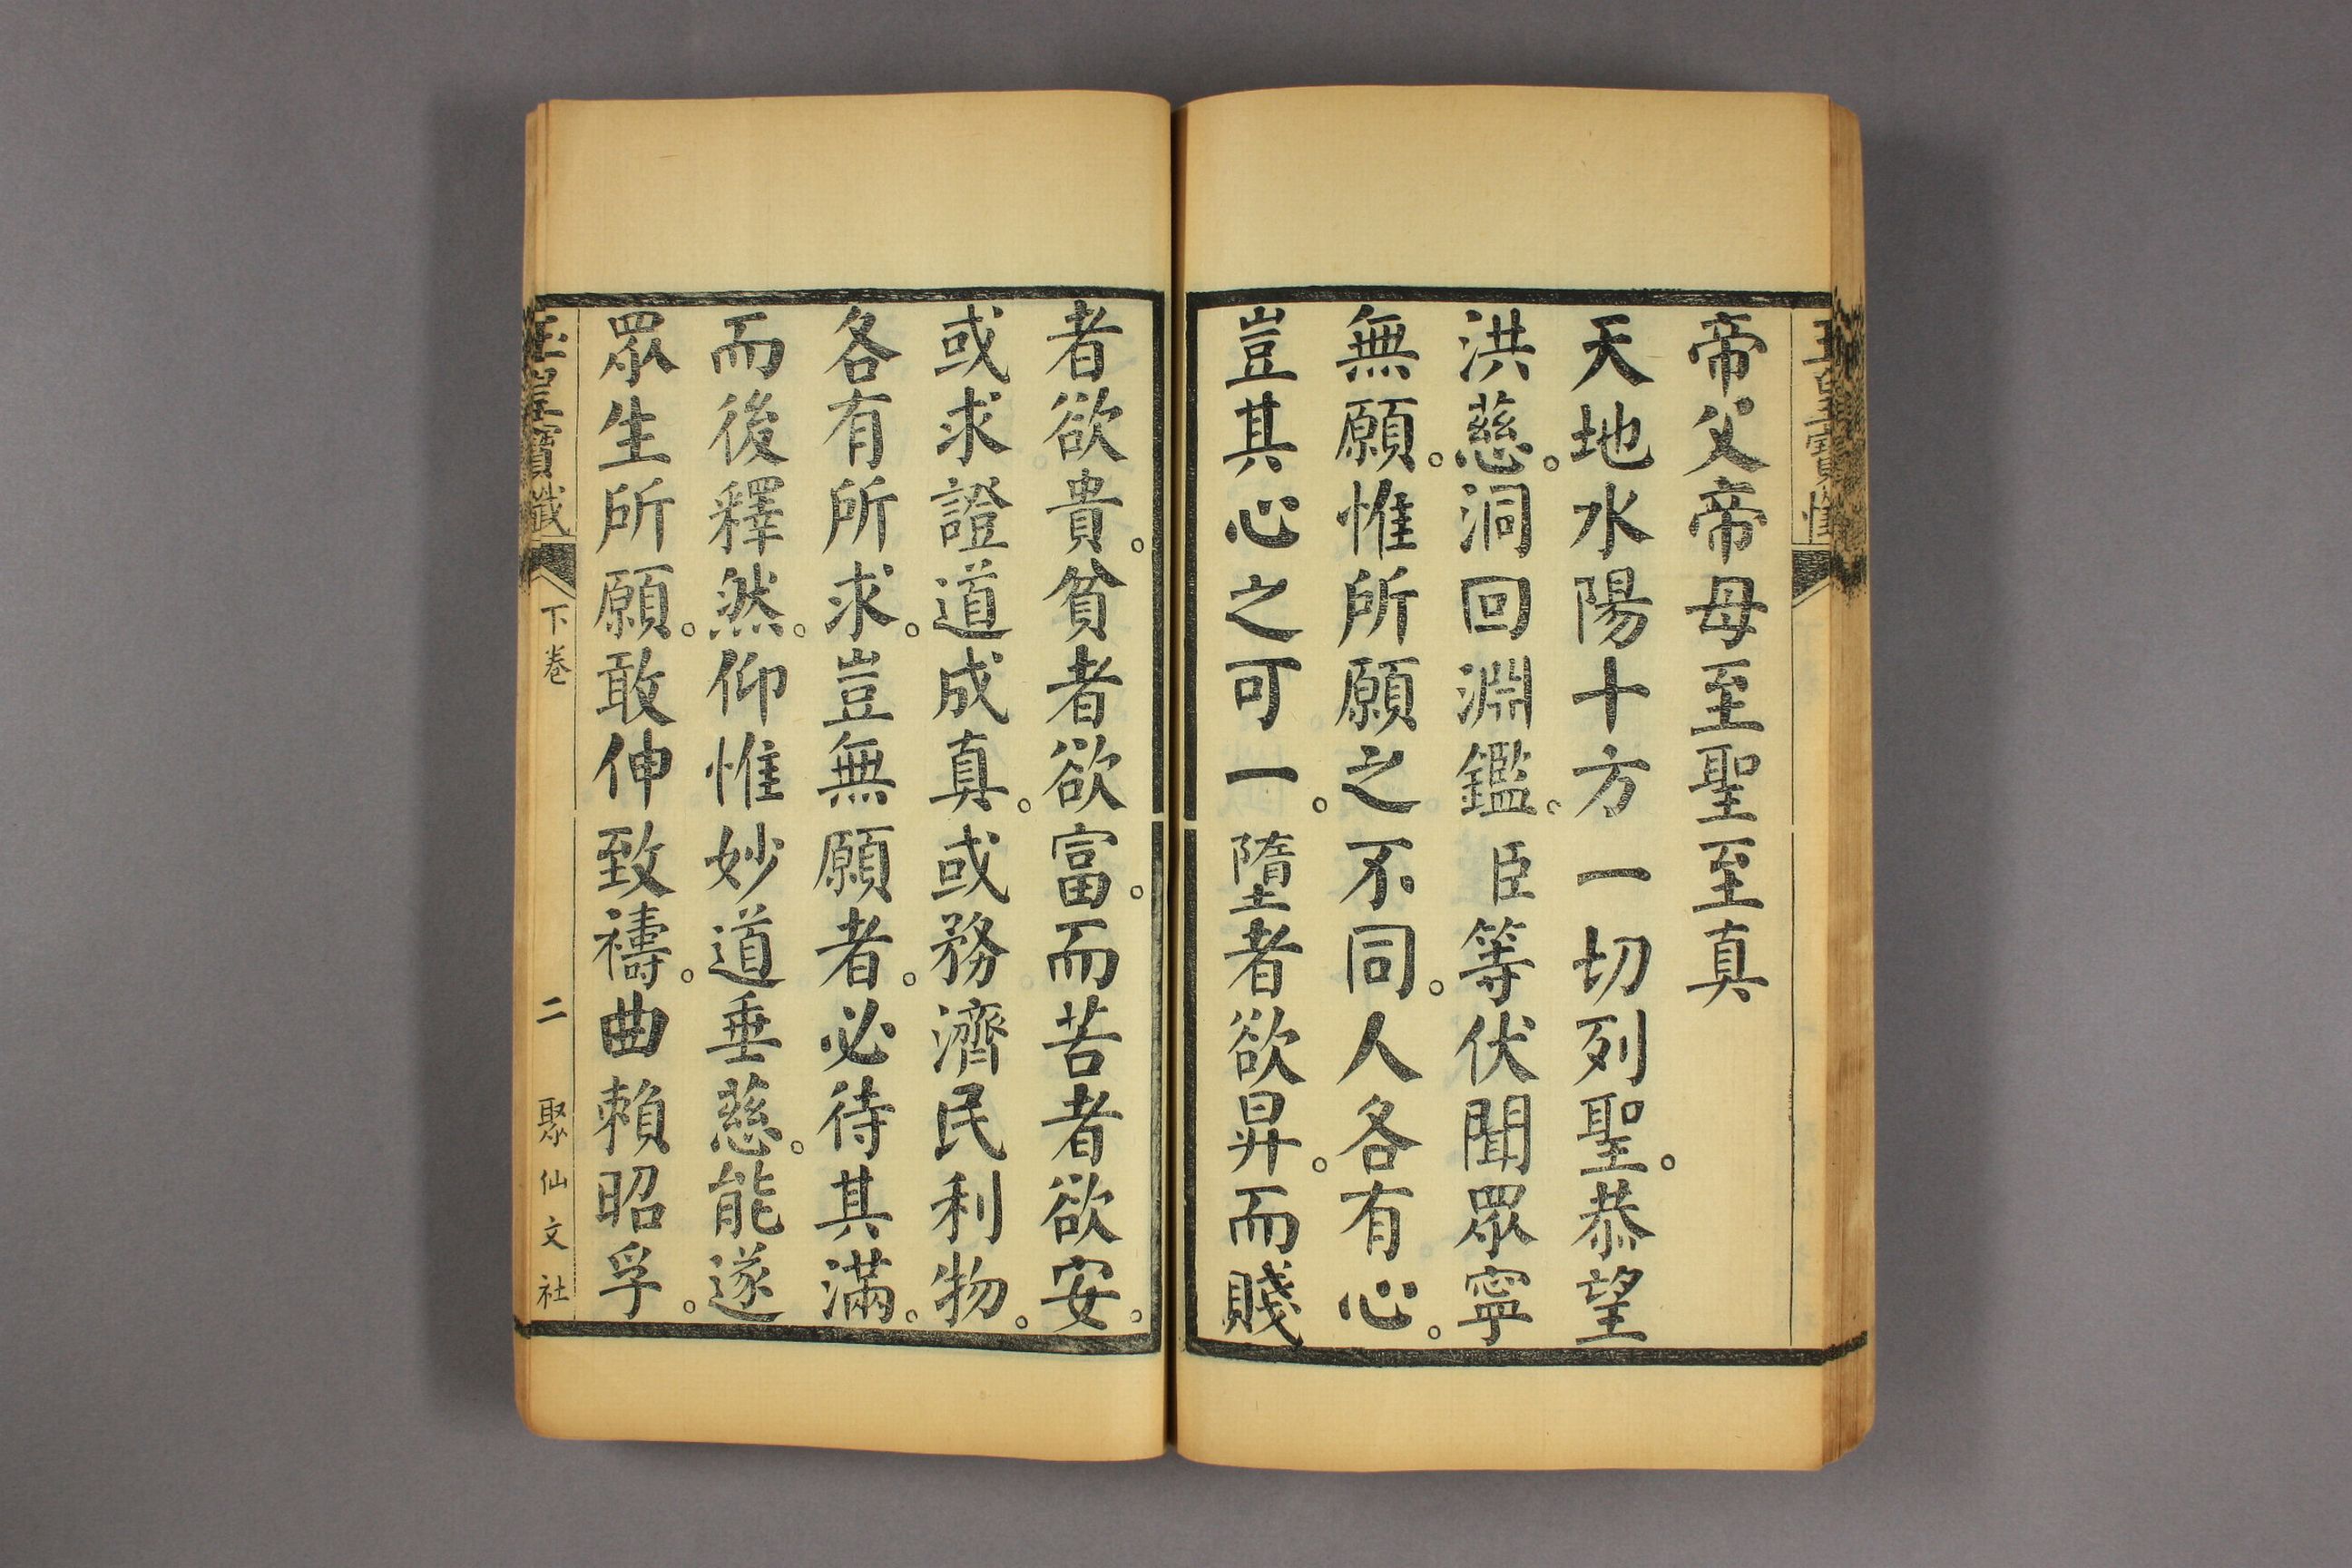 帝父帝母至聖至真
天地水陽十方一切列聖。恭望
洪慈。洞回淵鑑。臣等伏聞眾寧
無願。惟所願之不同。人各有心。
豈其心之可一。墮者欲昇。而賤
者欲貴。貧者欲富。而苦者欲安。
或求證道成真。或務濟民利物。
各有所求。豈無願者。必待其滿。
而後釋然。仰惟妙道垂慈。能遂
眾生所願。敢伸致禱。曲賴昭孚。
玉皇寶懺 下卷 二 聚仙文社